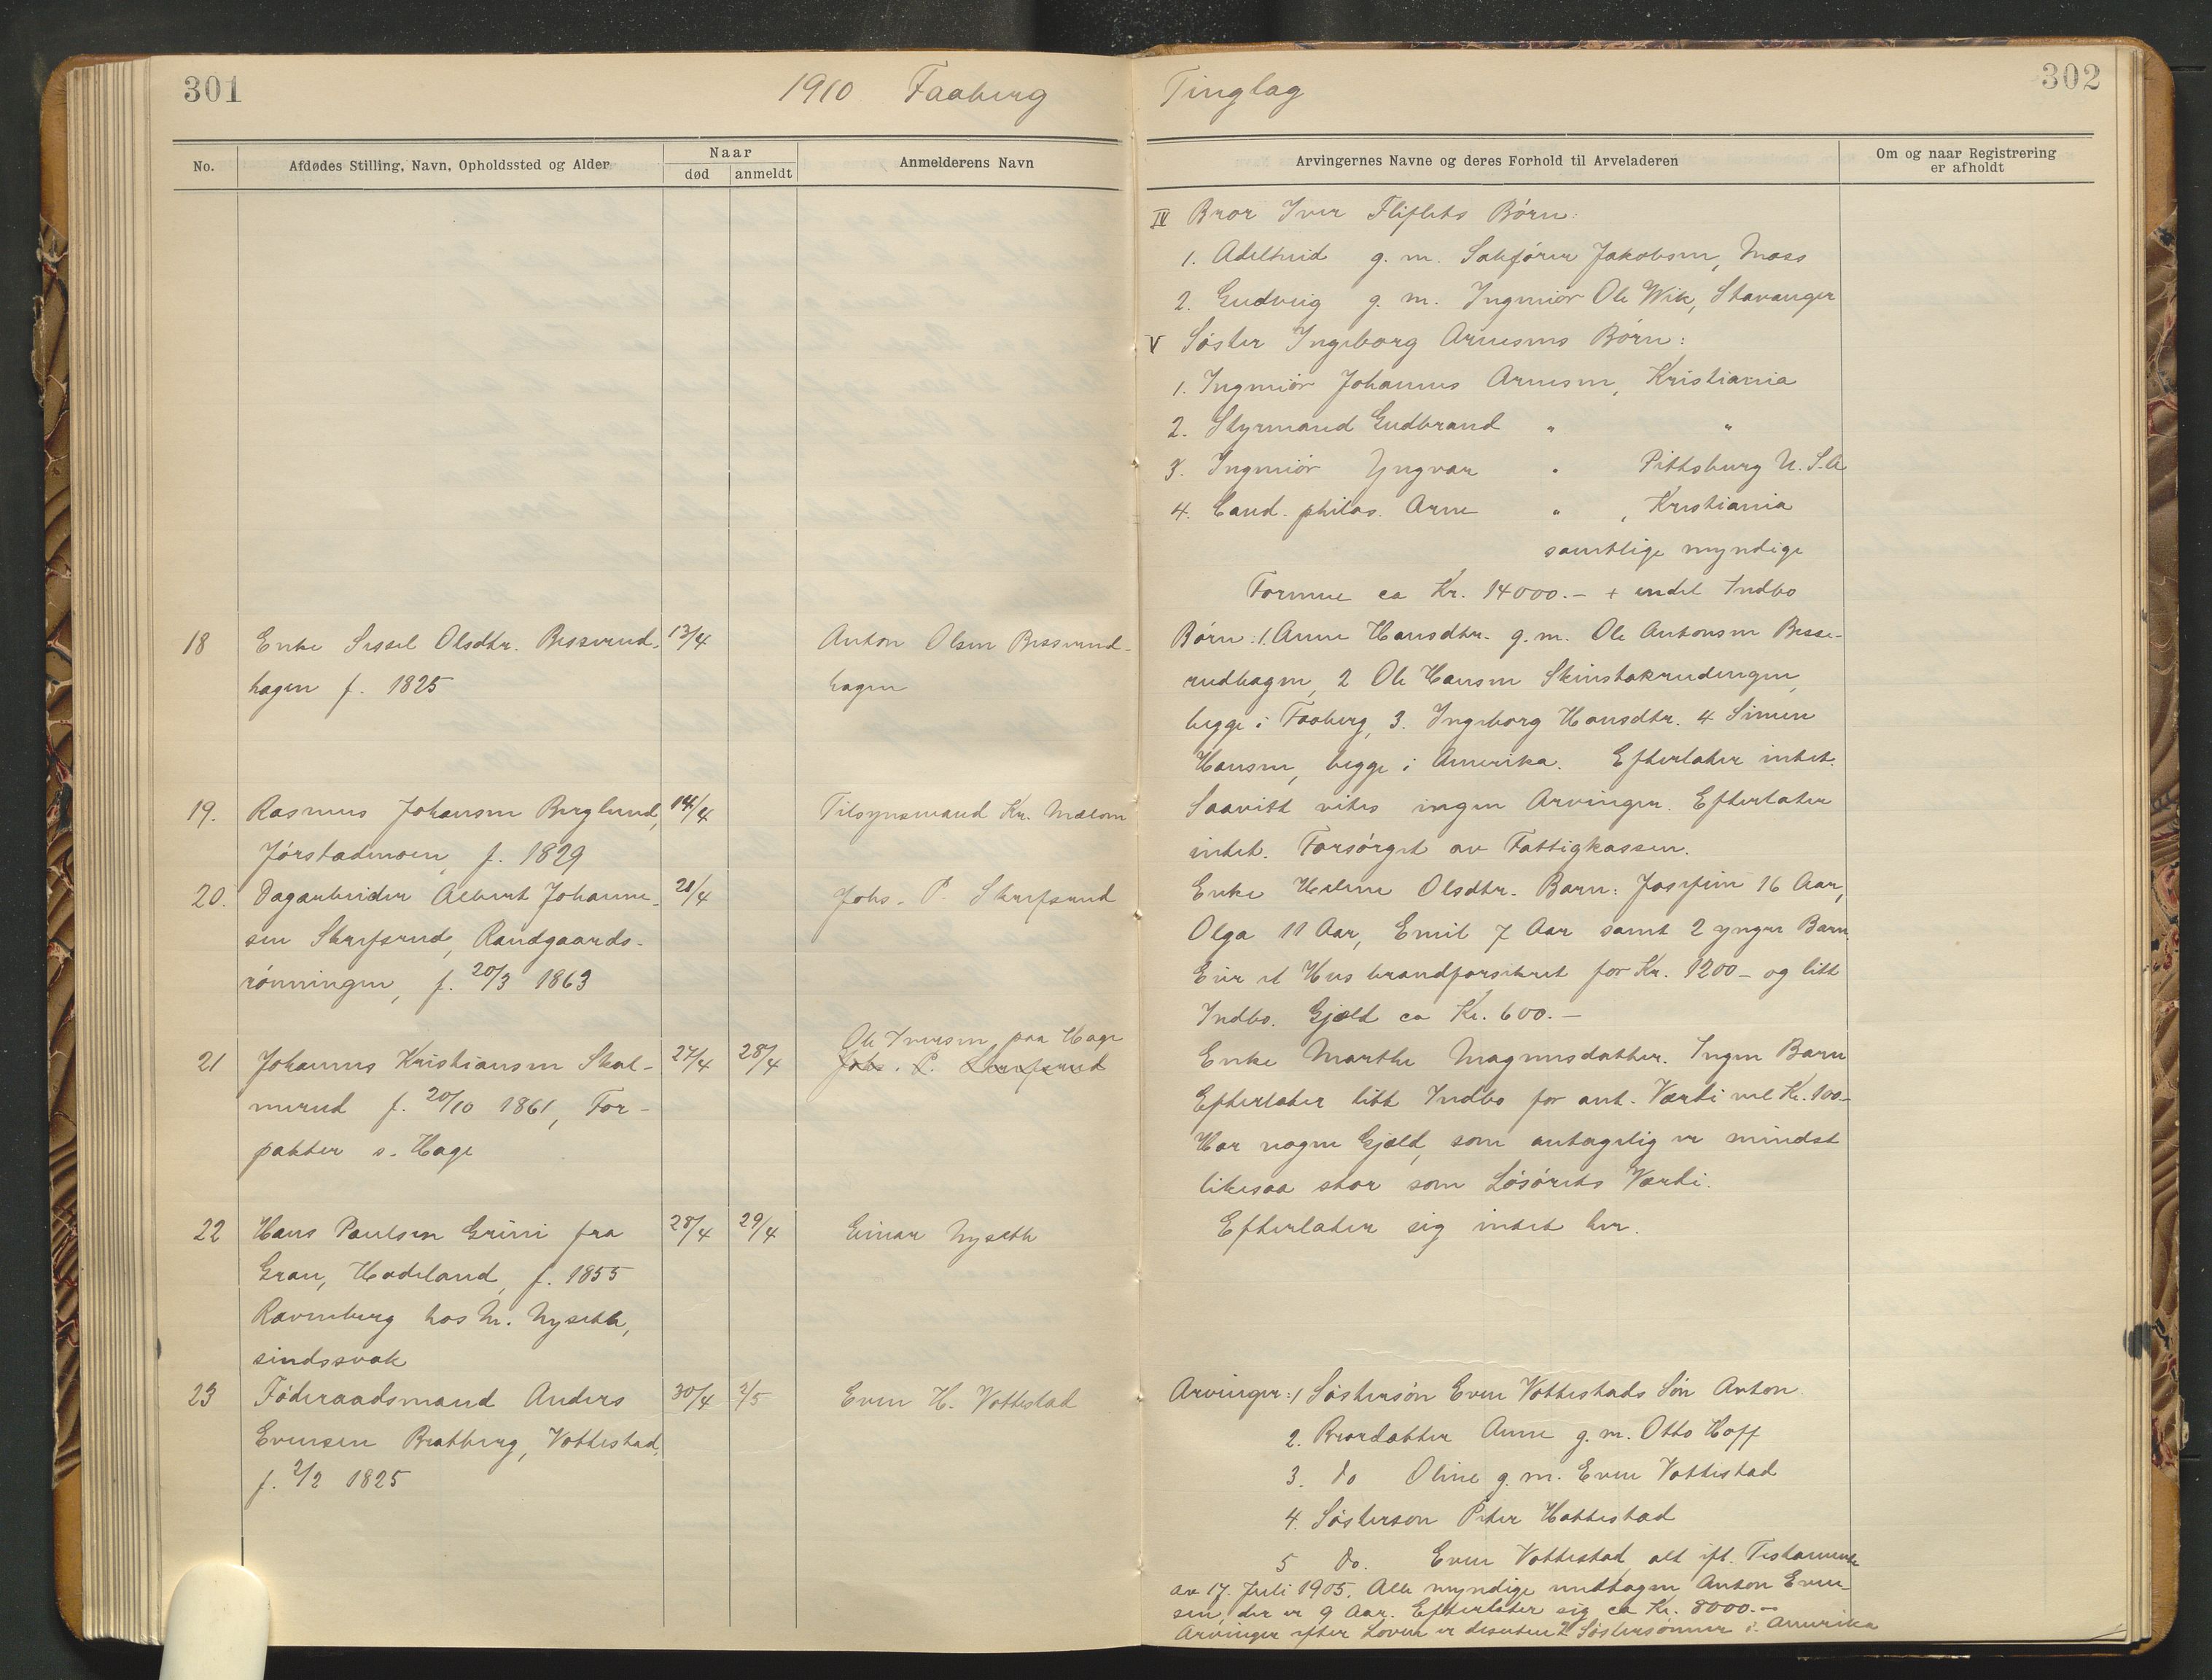 301
1910 Faaberg
Tinglag
302
No.
Afdødes Stilling, Navn, Opholdssted og Alder
Naar
død
anmeldt
Anmelderens Navn
Arvingernes Navne og deres Forhold til Arveladeren
Om og naar Registrering
er afholdt
IV Bror Iver Fliflets Børn:
1. Adelheid g. m. Sakfører Jakobsen, Moss
2. Gudveig g. m. Ingeniør Ole Wik, Stavanger
V Søster Ingeborg Arnesens Børn:
1. Ingeniør Johannes Arnesen, Kristiania
2. Styrmand Gudbrand " "
3. Ingeniør Yngvar " Pittsburg U.S.A
4. Cand. philos. Arne " , Kristiania
samtlige myndige
Formue ca Kr. 14000.- + endel Indbo
18 Enke Sissel Olsdtr. Besserud- 13/4 Anton Olsen Besserud-
hagen f. 1825
hagen
Børn: 1. Anne Hansdtr. g. m. Ole Antonsen Besse-
rudhagen, 2 Ole Hansen Skinstakrudengen,
begge i Faaberg, 3. Ingeborg Hansdtr. 4 Simen
Hansen, begge i Amerika. Efterlater intet.
19. Rasmus Johansen Berglund, 14/4 Tilsynsmand Kr. Mælom
Jørstadmoen, f. 1829
Saavitt vites ingen Arvinger. Efterlater
intet. Forsørget av Fattigkassen.
20. Dagarbeider Albert Johanne- 21/4 Johs. P. Skrefsrud
sen Skrefsrud, Randgaards-
rønningen, f. 20/3 1863
Enke Helene Olsdtr. Barn: Josefine 16 Aar,
Olga 11 Aar, Emil 7 Aar samt 2 yngre Barn.
Eier et Hus brandforsikret for Kr. 1200- og litt
Indbo. Gjæld ca Kr. 600.-
21 Johannes Kristiansen Skal- 27/4 28/4 Ole Iversen paa Hage
Johs. P. Skrefsrud
merud f. 20/10 1861, For-
pakter s. Hage
Enke Marthe Magnusdatter. Ingen Barn
Efterlater litt Indbo for ant. Værdi vel Kr. 100.-
Har nogen Gjæld, som antagelig er mindst
likesaa stor som Løsørets Værdi.
22 Hans Paulsen Grini fra 28/4 29/4 Einar Nyseth
Gran, Hadeland, f. 1855
Ravneberg hos N. Nyseth,
sindssvak
Efterlater sig intet her.
23 Føderaadsmand Anders 30/4 2/5 Even H. Vottestad
Evensen Bratberg, Vottestad,
f. 2/2 1825
Arvinger: 1 Søstersøn Even Vottestads Søn Anton.
2. Brordatter Anne g. m. Otto Hoff
3. do Oline g. m. Even Vottestad
4. Søsterson Peter Hattestad
5 do. Even Vottestad, alt ifl. Testamente
av 17. Juli 1905. Alle myndige undtagen Anton Even-
sen, der er 9 Aar. Efterlater sig ca Kr. 8000.-
Arvinger efter Loven er desuten 2 Søstersønner i Amerika